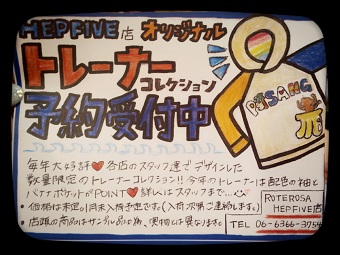 HEPFIVE店 オリジナル
トレーナー
コレクション
予約受付中
PISANG
毎年大好評♥各店のスタッフ達でデザインした
数量限定のトレーナーコレクション!!今年のトレーナーは配色の袖と
バナナポケットがPOINT♥詳しくはスタッフまで...
・価格は未定。1月末入荷予定です。(入荷次第ご連絡します。)
・店頭の商品はサンプル品の為、実物とは異なります。
ROTEROSA
HEPFIVE店
TEL 06-6366-3954